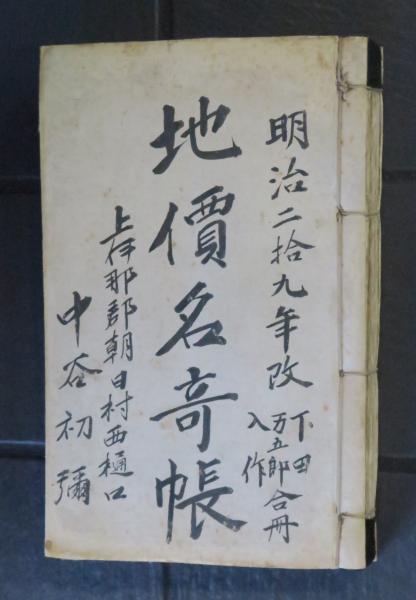 明治二拾九年改
下田
万五郎 合冊
入作
地價名寄帳
上伊那郡朝日村西樋口
中谷初彌